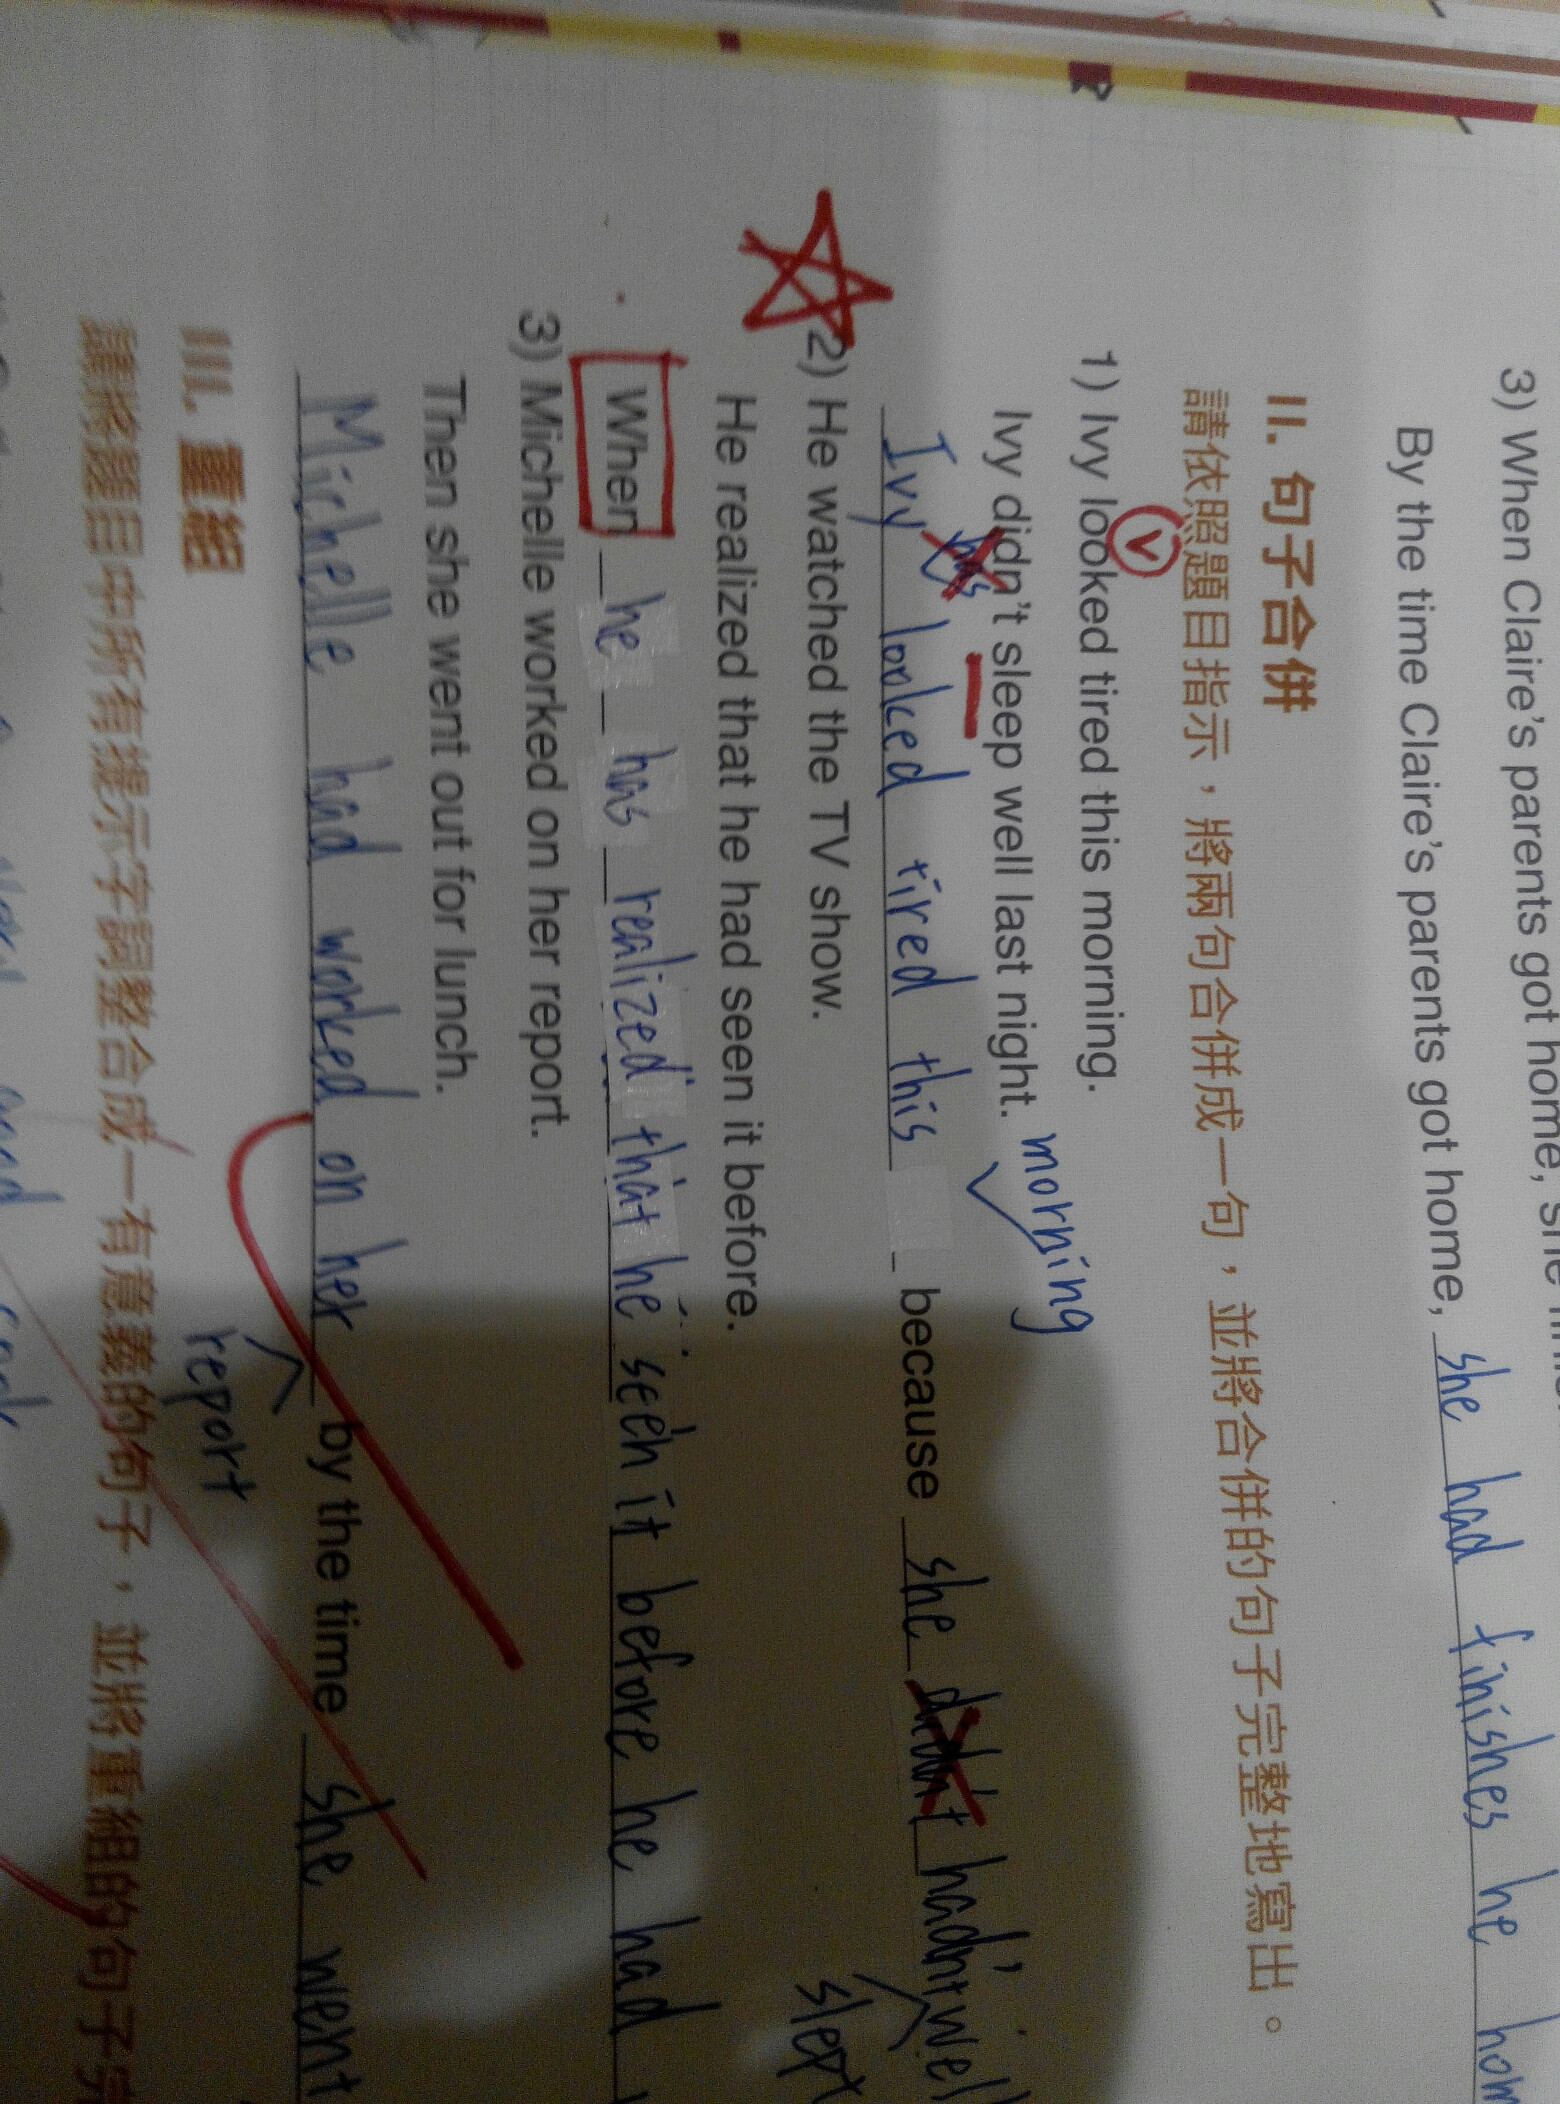 3) When Claire's parents got home, she
By the time Claire's parents got home, she had finishes he hom
II. 句子合併
請依照題目指示，將兩句合併成一句，並將合併的句子完整地寫出。
V
1) Ivy looked tired this morning.
Ivy didn't sleep well last night.
morning
Ivy has looked tired this because she didn't hadn't well
slept
2) He watched the TV show.
He realized that he had seen it before.
When he has realized that he seen it before he had
3) Michelle worked on her report.
Then she went out for lunch.
Michelle had worked on her by the time she went
report
III. 重組
請將題目中所有提示字詞整合成一有意義的句子，並將重組的句子完